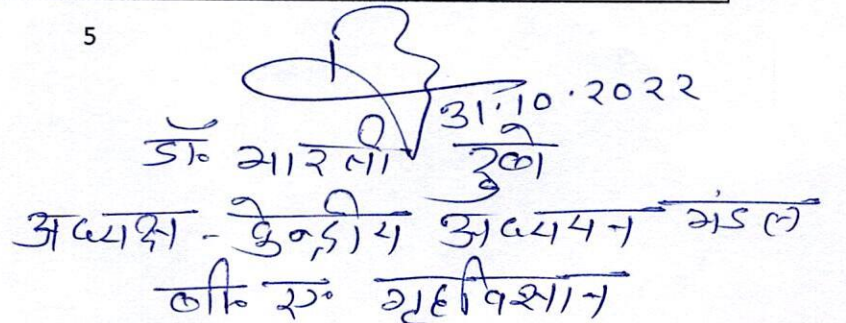 5
31.10.2022
डॉ. भारती दुबे
अध्यक्ष - केन्द्रीय अध्ययन मंडल
बी. ए. गृहविज्ञान